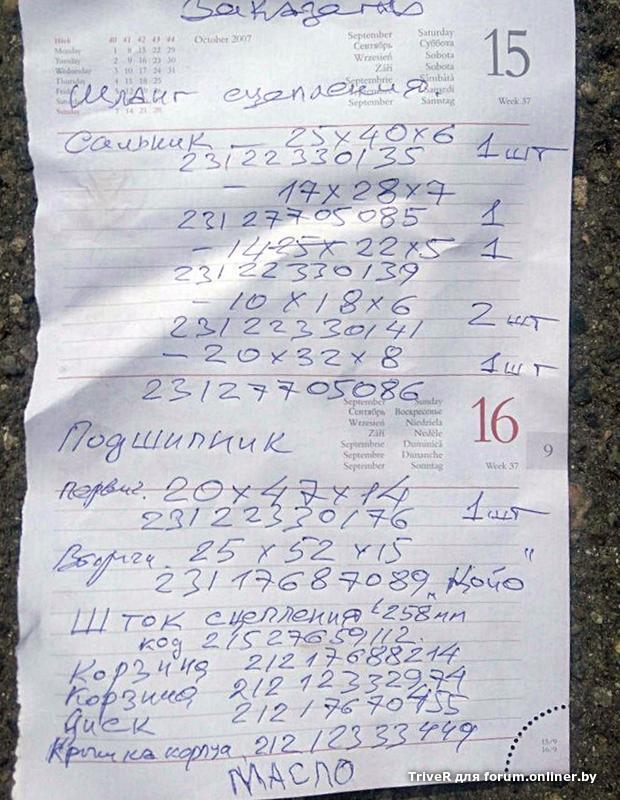 Заказать
Week 40 41 42 43 44 October 2007 September Saturday 15
Monday 1 8 15 22 29 Сентябрь Суббота
Tuesday 2 9 16 23 30 Wrzesień Sobota
Wednesday 3 10 17 24 31 Září Sobota
Thursday 4 11 18 25 Septembrie Sâmbătă
Septembre Samedi
September Sonntag Week 37
Шланг сцепления.
Сальник - 25x40x6
23122330135 1 шт
- 17x28x7
23127705085 1
- 14-25x22x5 1
23122330139
- 10x18x6
23122330141 2 шт
- 20x32x8 1 шт
23127705086
September Sunday 16
Сентябрь Воскресенье
Wrzesień Niedziela 9
Září Neděle
Septembrie Duminică
Septembre Dimanche
September Sonntag Week 37
Подшипник
первич. 20x47x14
23122330176 1 шт
Вторич. 25x52x15 "
23117687089 „Койо
Шток сцепления L 258мм
код 21527659112.
Корзина 21217688214
Корзина 21212332974
Диск 21217670455
Крышка корпуса 21212333449
МАСЛО
15/9
16/9
TriveR для forum.onliner.by